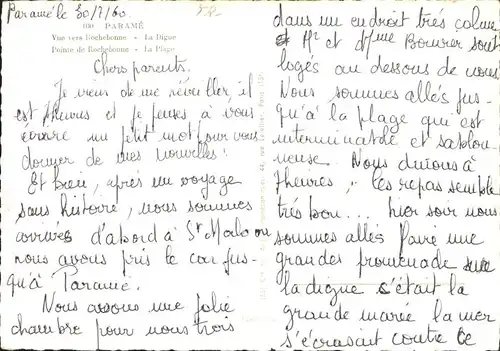 Paramé le 30/7/60
1130 PARAMÉ
Vue vers Rochebonne - La Digue
Pointe de Rochebonne - La Plage
Chers parents.
Je viens de me réveiller, il
est 7 heures et je pense à vous
écrire un petit mot pour vous
donner de mes nouvelles.
Et bien, après un voyage
sans histoire, nous sommes
arrivés d'abord à St Malo ou
nous avons pris le car jus-
qu'à Paramé.
Nous avons une jolie
chambre pour nous trois
dans un endroit très calme
et Mr et Mme Bouvier sont
logés au dessous de nous
Nous sommes allés jus-
qu'à la plage qui est
interminable et sablon-
neuse. Nous dinons à
7 heures, les repas semble
très bon... hier soir nous
sommes allés faire une
grandes promenade sur
la digue c'était la
grande marée la mer
s'écrasait contre le